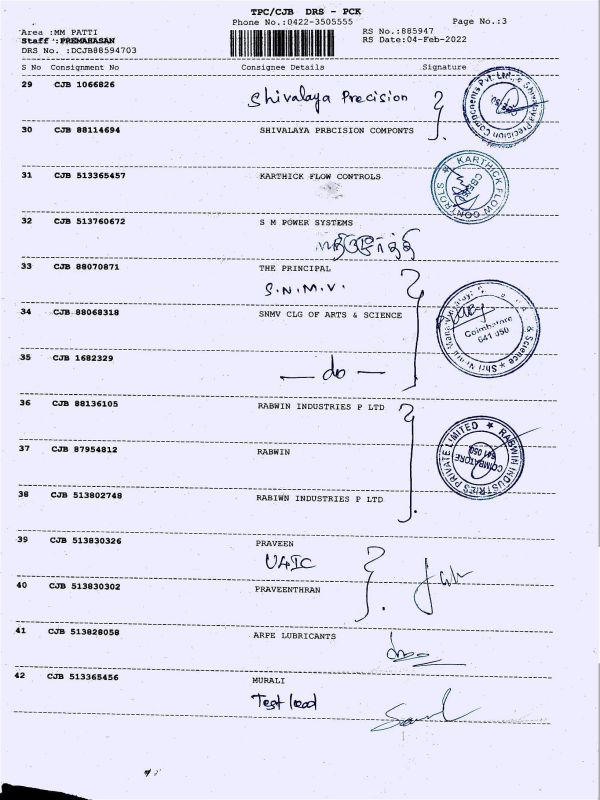 TPC/CJB DRS - PCK
Phone No.:0422-3505555 Page No.:3
Area :MM PATTI RS No.:885947
Staff :PREMAHASAN RS Date:04-Feb-2022
DRS No. :DCJB88594703
S No Consignment No Consignee Details Signature
29 CJB 1066826
Shivalaya Precision
30 CJB 88114694 SHIVALAYA PRBCISION COMPONTS
31 CJB 513365457 KARTHICK FLOW CONTROLS
KARTHICK FLOW CONTROLS
32 CJB 513760672 S M POWER SYSTEMS
33 CJB 88070871 THE PRINCIPAL
S.N.M.V.
34 CJB 88068318 SNMV CLG OF ARTS & SCIENCE
Coimbatore
641 050
35 CJB 1682329
— do —
36 CJB 88136105 RABWIN INDUSTRIES P LTD
RABWIN INDUSTRIES PRIVATE LIMITED
COIMBATORE
641 050
37 CJB 87954812 RABWIN
38 CJB 513802748 RABIWN INDUSTRIES P LTD
39 CJB 513830326 PRAVEEN
40 CJB 513830302 PRAVEENTHRAN
41 CJB 513828058 ARPE LUBRICANTS
42 CJB 513365456 MURALI
Test lead